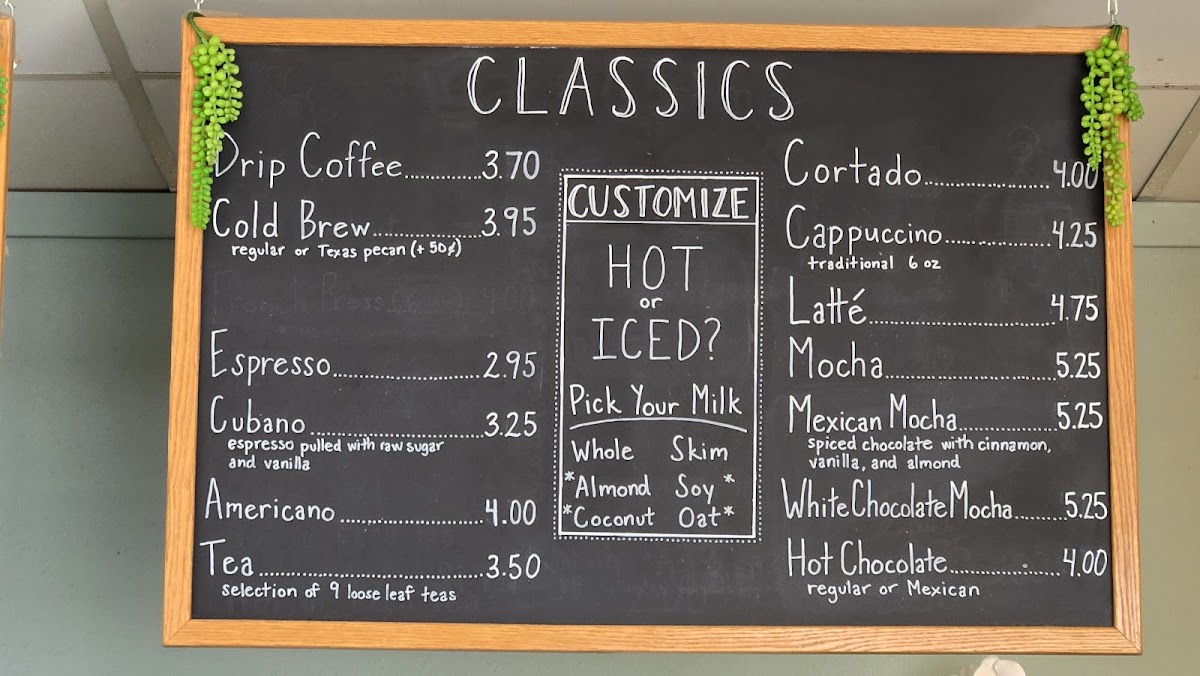 CLASSICS
Drip Coffee..........3.70
Cold Brew..........3.95
regular or Texas pecan (+ 50¢)
Espresso..........2.95
Cubano..........3.25
espresso pulled with raw sugar
and vanilla
Americano..........4.00
Tea..........3.50
selection of 9 loose leaf teas
CUSTOMIZE
HOT
or
ICED?
Pick Your Milk
Whole Skim
*Almond Soy*
*Coconut Oat*
Cortado..........4.00
Cappuccino..........4.25
traditional 6 oz
Latté..........4.75
Mocha..........5.25
Mexican Mocha..........5.25
spiced chocolate with cinnamon,
vanilla, and almond
White Chocolate Mocha..........5.25
Hot Chocolate..........4.00
regular or Mexican